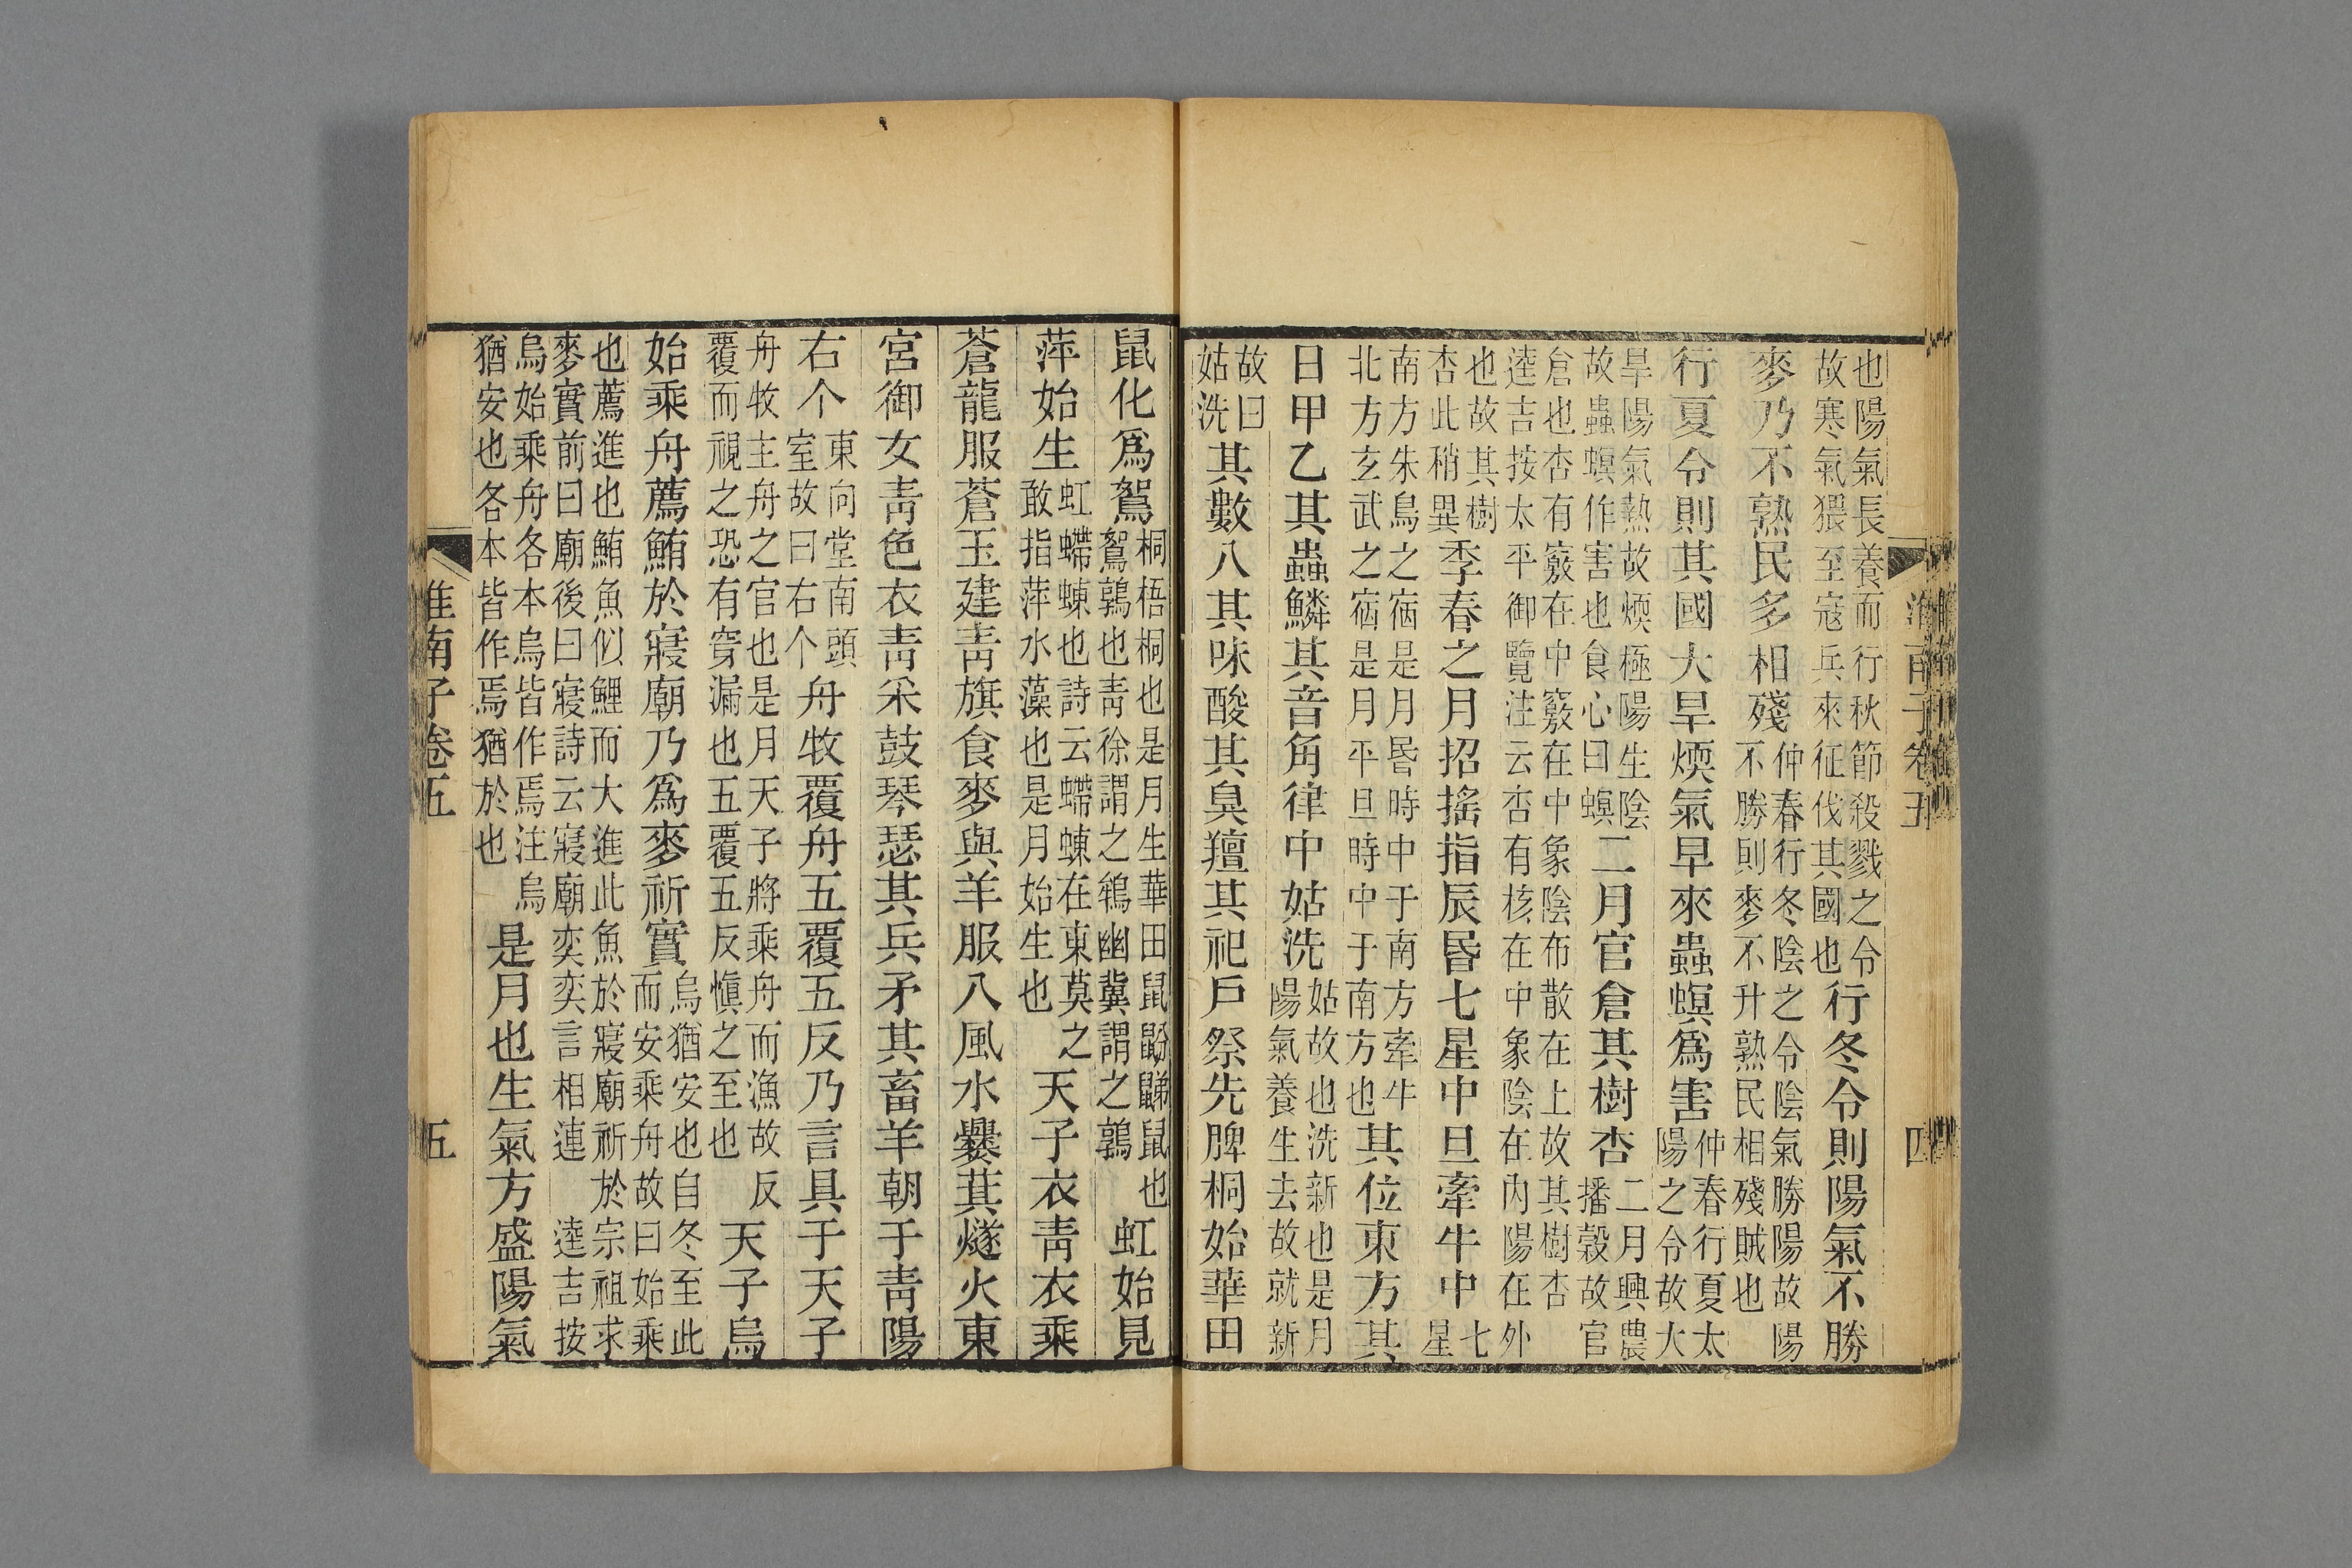 淮南子卷五
四
也陽氣長養而行秋節殺戮之令
故寒氣猥至寇兵來征伐其國也行冬令則陽氣不勝
麥乃不熟民多相殘仲春行冬陰之令陰氣勝陽故陽
不勝則麥不升熟民相殘賊也
行夏令則其國大旱煗氣早來蟲螟爲害仲春行夏太
陽之令故大
旱陽氣熱故煗極陽生陰
故蟲螟作害也食心曰螟二月官倉其樹杏二月興農
播穀故官
倉也杏有竅在中竅在中象陰布散在上故其樹杏
逵吉按太平御覽注云杏有核在中象陰在內陽在外
也故其樹
杏此稍異季春之月招搖指辰昬七星中旦牽牛中七
星
南方朱鳥之宿是月昬時中于南方牽牛
北方玄武之宿是月平旦時中于南方也其位東方其
日甲乙其蟲鱗其音角律中姑洗姑故也洗新也是月
陽氣養生去故就新
故曰
姑洗其數八其味酸其臭羶其祀戶祭先脾桐始華田
鼠化爲鴽桐梧桐也是月生華田鼠鼢鼷鼠也
鴽鶉也青徐謂之鴾幽冀謂之鶉虹始見
萍始生虹螮蝀也詩云螮蝀在東莫之
敢指萍水藻也是月始生也天子衣青衣乘
蒼龍服蒼玉建青旗食麥與羊服八風水爨萁燧火東
宮御女青色衣青采鼓琴瑟其兵矛其畜羊朝于青陽
右个東向堂南頭
室故曰右个舟牧覆舟五覆五反乃言具于天子
舟牧主舟之官也是月天子將乘舟而漁故反
覆而視之恐有穿漏也五覆五反愼之至也天子烏
始乘舟薦鮪於寢廟乃爲麥祈實烏猶安也自冬至此
而安乘舟故曰始乘
也薦進也鮪魚似鯉而大進此魚於寢廟祈於宗祖求
麥實前曰廟後曰寢詩云寢廟奕奕言相連 逵吉按
烏始乘舟各本烏皆作焉注烏
猶安也各本皆作焉猶於也是月也生氣方盛陽氣
淮南子卷五
五